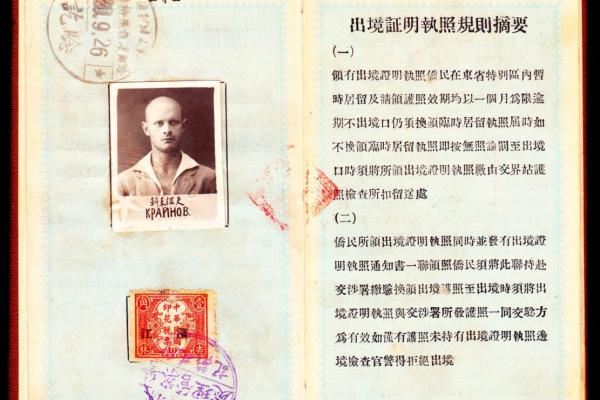 9.26
КРАЙНОВ.
中華民國
印花税票
10
江
出境証明執照規則摘要
(一)
領有出境證明執照僑民在東省特別區內暫
時居留及請領護照效期均以一個月爲限逾
期不出境口仍須換領臨時居留執照屆時如
不換領臨時居留執照即按無照論罰至出境
口時須將所領出境證明執照繳由交界站護
照檢查所扣留送處
(二)
僑民所領出境證明執照同時並發有出境證
明執照通知書一聯領照僑民須將此聯持赴
交涉署繳驗換領出境護照至出境時須將出
境證明執照與交涉署所發護照一同交驗方
爲有效如僅有護照未持有出境證明執照邊
境檢查官警得拒絕出境